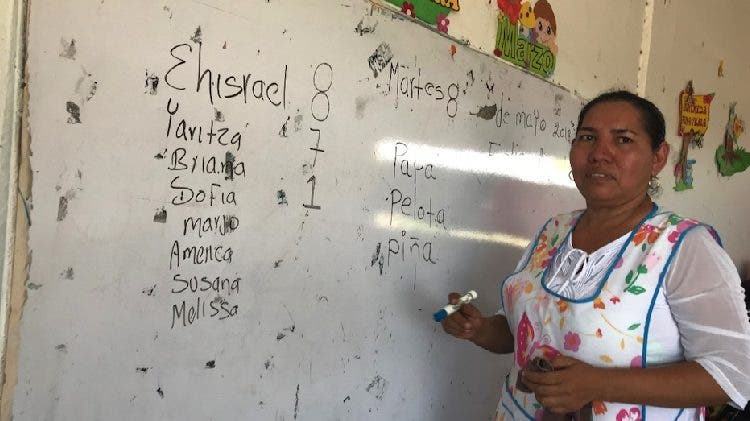 Marzo
Ehisrael 8
Yaritza 7
Briana
Sofia 1
marjo
America
Susana
Melissa
Martes 8
de mayo
Papá
Pelota
piña